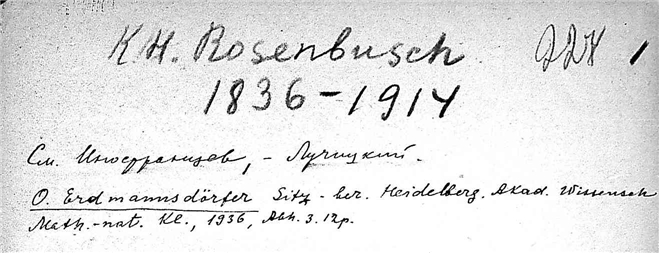 K H. Rosenbusch 228 1
1836-1914
См. Иностранцев, - Лучицкий.
O. Erdmannsdörfer Sitz-ber. Heidelberg. Akad. Wissensch
Math.-nat. Kl., 1936, Abh. 3. 12p.